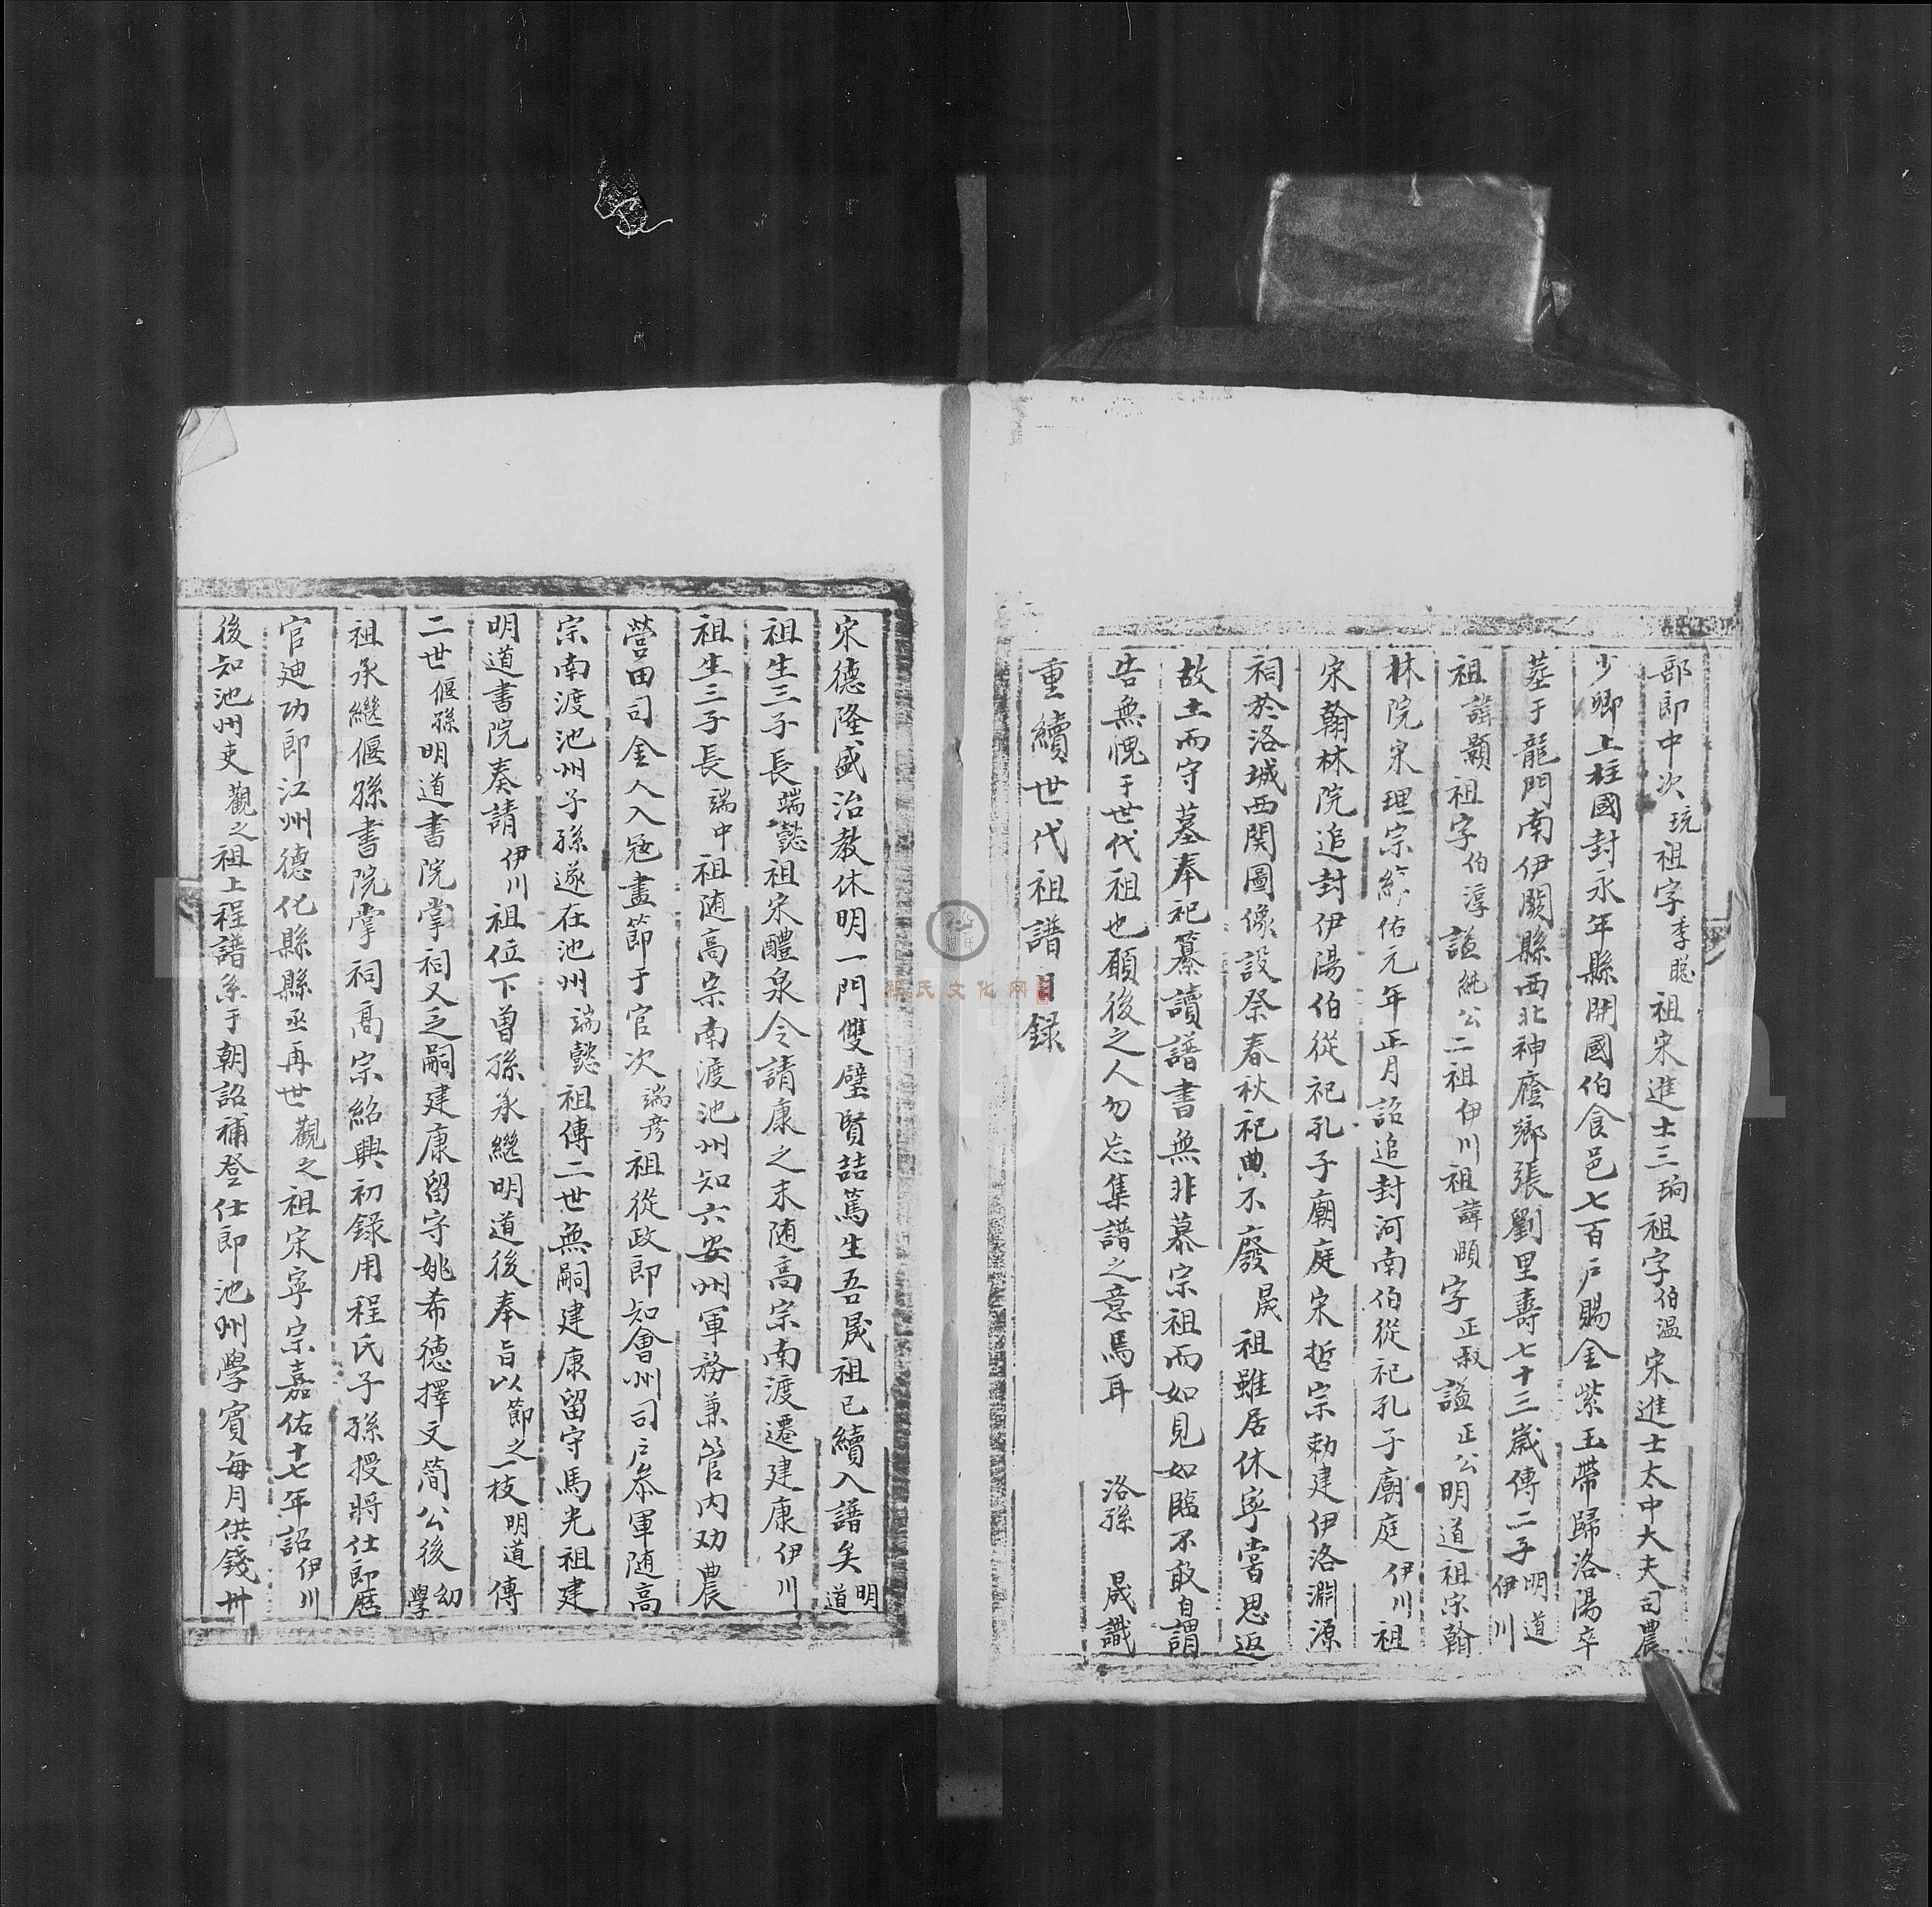 部郎中次玩祖字季聰祖宋進士三珦祖字伯温宋進士太中大夫司農
少卿上柱國封永年縣開國伯食邑七百户賜金紫玉帶歸洛陽卒
墓于龍門南伊闕縣西北神廕鄉張劉里壽七十三歲傳二子明道伊川
祖諱顥祖字伯淳謚純公二祖伊川祖諱頤字正叔謚正公明道祖宋翰
林院宋理宗佑元年正月詔追封河南伯從祀孔子廟庭伊川祖
宋翰林院追封伊陽伯從祀孔子廟庭宋哲宗勅建伊洛淵源
祠於洛城西関圖像設祭春秋祀典不廢晟祖雖居休寧嘗思返
故土而守墓奉祀纂讀譜書無非慕宗祖而如見如臨不敢自謂
告無愧于世代祖也願後之人勿忘集譜之意焉耳 洛孫 晟識
重續世代祖譜目録
宋德隆盛治教休明一門雙璧賢喆篤生吾晟祖已續入譜矣明道
祖生三子長端懿祖宋醴泉令請康之末随高宗南渡遷建康伊川
祖生三子長端中祖随高宗南渡池州知六安州軍務兼管内劝農
營田司金人入寇盡節于官次端彦祖從政郎知會州司户叅軍随高
宗南渡池州子孫遂在池州端懿祖傳二世無嗣建康留守馬光祖建
明道書院奏請伊川祖位下曽孫承繼明道後奉旨以節之一枝明道傳
二世偃孫明道書院掌祠又乏嗣建康留守姚希德擇文簡公後幼學
祖承繼偃孫書院掌祠高宗紹興初録用程氏子孫授將仕郎歷
官廸功郎江州德化縣縣丞再世觀之祖宋寧宗嘉佑十七年詔伊川
後知池州吏觀之祖上程譜系于朝詔補登仕郎池州學賓每月供錢卅
程氏文化网